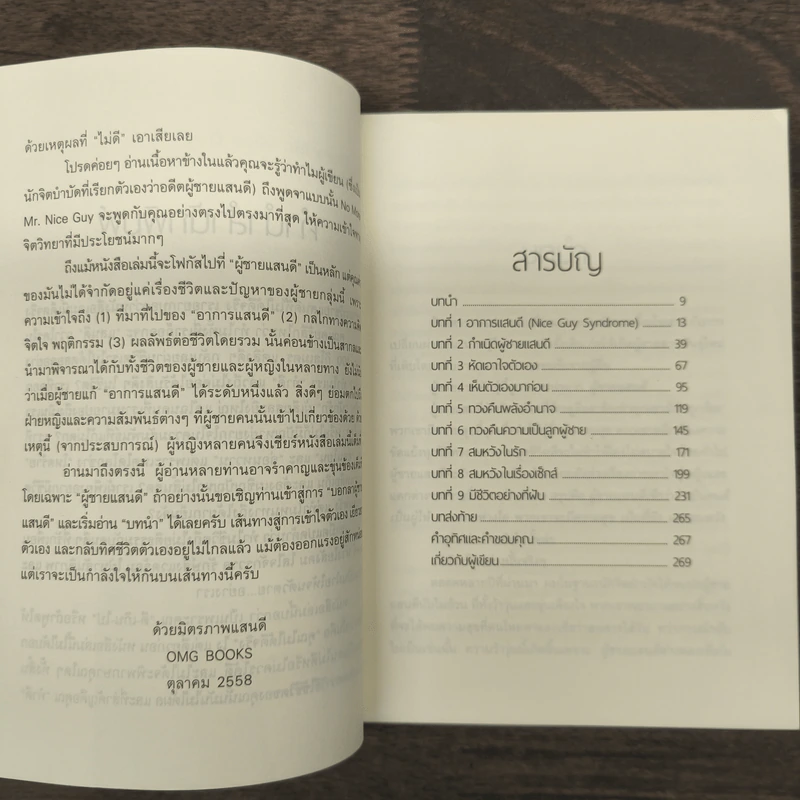 ด้วยเหตุผลที่ "ไม่ดี" เอาเสียเลย
โปรดค่อยๆ อ่านเนื้อหาข้างในแล้วคุณจะรู้ว่าทำไมผู้เขียน
นักจิตบำบัดที่เรียกตัวเองว่าอดีตผู้ชายแสนดี) ถึงพูดจาแบบนั้น No More
Mr. Nice Guy จะพูดกับคุณอย่างตรงไปตรงมาที่สุด ให้ความเข้าใจทาง
จิตวิทยาที่มีประโยชน์มากๆ
ถึงแม้หนังสือเล่มนี้จะโฟกัสไปที่ "ผู้ชายแสนดี" เป็นหลัก
ของมันไม่ได้จำกัดอยู่แค่เรื่องชีวิตและปัญหาของผู้ชายกลุ่มนี้ เพราะ
ความเข้าใจถึง (1) ที่มาที่ไปของ "อาการแสนดี" (2) กลไกทางความคิด
จิตใจ พฤติกรรม (3) ผลลัพธ์ต่อชีวิตโดยรวม นั้นค่อนข้างเป็นสากลและ
นำมาพิจารณาได้กับทั้งชีวิตของผู้ชายและผู้หญิงในหลายทาง
ว่าเมื่อผู้ชายแก้ "อาการแสนดี" ได้ระดับหนึ่งแล้ว สิ่งดีๆ ย่อมตกไปถึง
ฝ่ายหญิงและความสัมพันธ์ต่างๆ ที่ผู้ชายคนนั้นเข้าไปเกี่ยวข้องด้วย ด้วย
เหตุนี้ (จากประสบการณ์) ผู้หญิงหลายคนจึงเชียร์หนังสือเล่มนี้เต็มที่
อ่านมาถึงตรงนี้ ผู้อ่านหลายท่านอาจรำคาญและขุ่นข้องเต็มที
โดยเฉพาะ "ผู้ชายแสนดี" ถ้าอย่างนั้นขอเชิญท่านเข้าสู่การ "บอกลาผู้ชาย
แสนดี" และเริ่มอ่าน "บทนำ" ได้เลยครับ เส้นทางสู่การเข้าใจตัวเอง เยียวยา
ตัวเอง และกลับทิศชีวิตตัวเองอยู่ไม่ไกลแล้ว แม้ต้องออกแรงอยู่สักหน่อย
แต่เราจะเป็นกำลังใจให้กันบนเส้นทางนี้ครับ
ด้วยมิตรภาพแสนดี
OMG BOOKS
ตุลาคม 2558
สารบัญ
บทนำ 9
บทที่ 1 อาการแสนดี (Nice Guy Syndrome) 13
บทที่ 2 กำเนิดผู้ชายแสนดี 39
บทที่ 3 หัดเอาใจตัวเอง 67
บทที่ 4 เห็นตัวเองมาก่อน 95
บทที่ 5 ทวงคืนพลังอำนาจ 119
บทที่ 6 ทวงคืนความเป็นลูกผู้ชาย 145
บทที่ 7 สมหวังในรัก 171
บทที่ 8 สมหวังในเรื่องเซ็กส์ 199
บทที่ 9 มีชีวิตอย่างที่ฝัน 231
บทส่งท้าย 265
คำอุทิศและคำขอบคุณ 267
เกี่ยวกับผู้เขียน 269